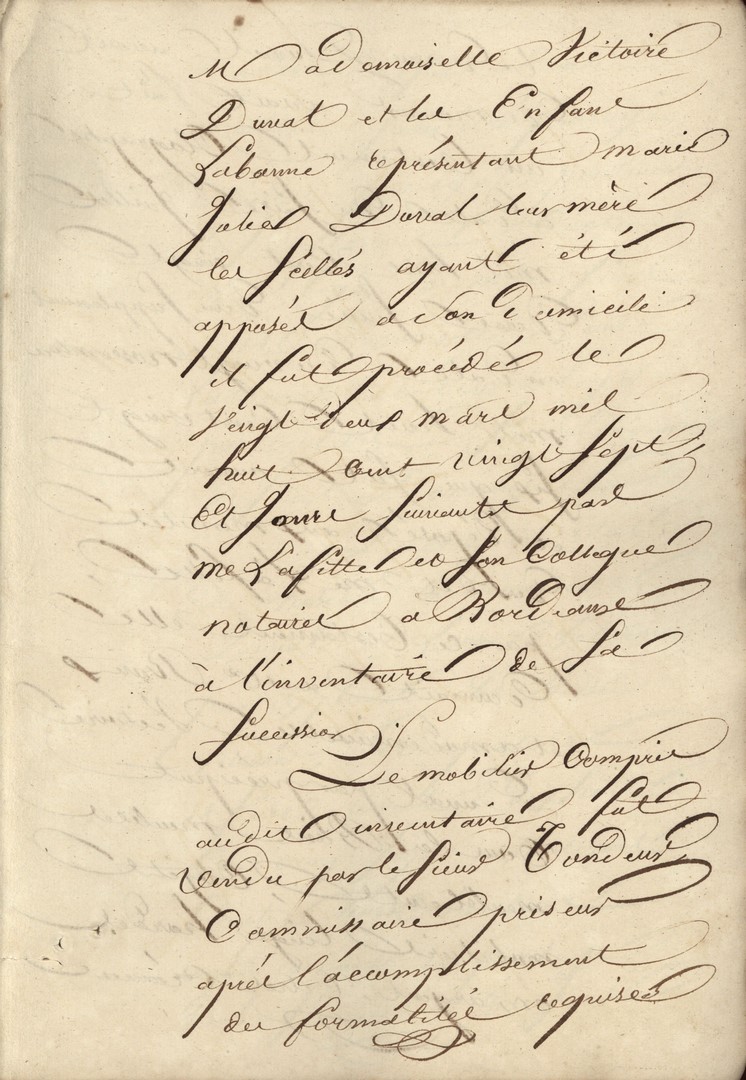 Mademoiselle Victoire
Duval et les Enfans
Labanne représentant marie
Julie Duval leur mère
les scellés ayant été
apposés a son domicile
il fut procédé le
vingt deux mars mil
huit cent vingt sept
Et jours suivants par
me Lafitte et son Collegue
notaires a Bordeaux
à l'inventaire de sa
succession
Le mobilier compris
audit inventaire fut
vendu par le sieur Tondeur
Commissaire priseur
après l'accomplissement
des formalités requises